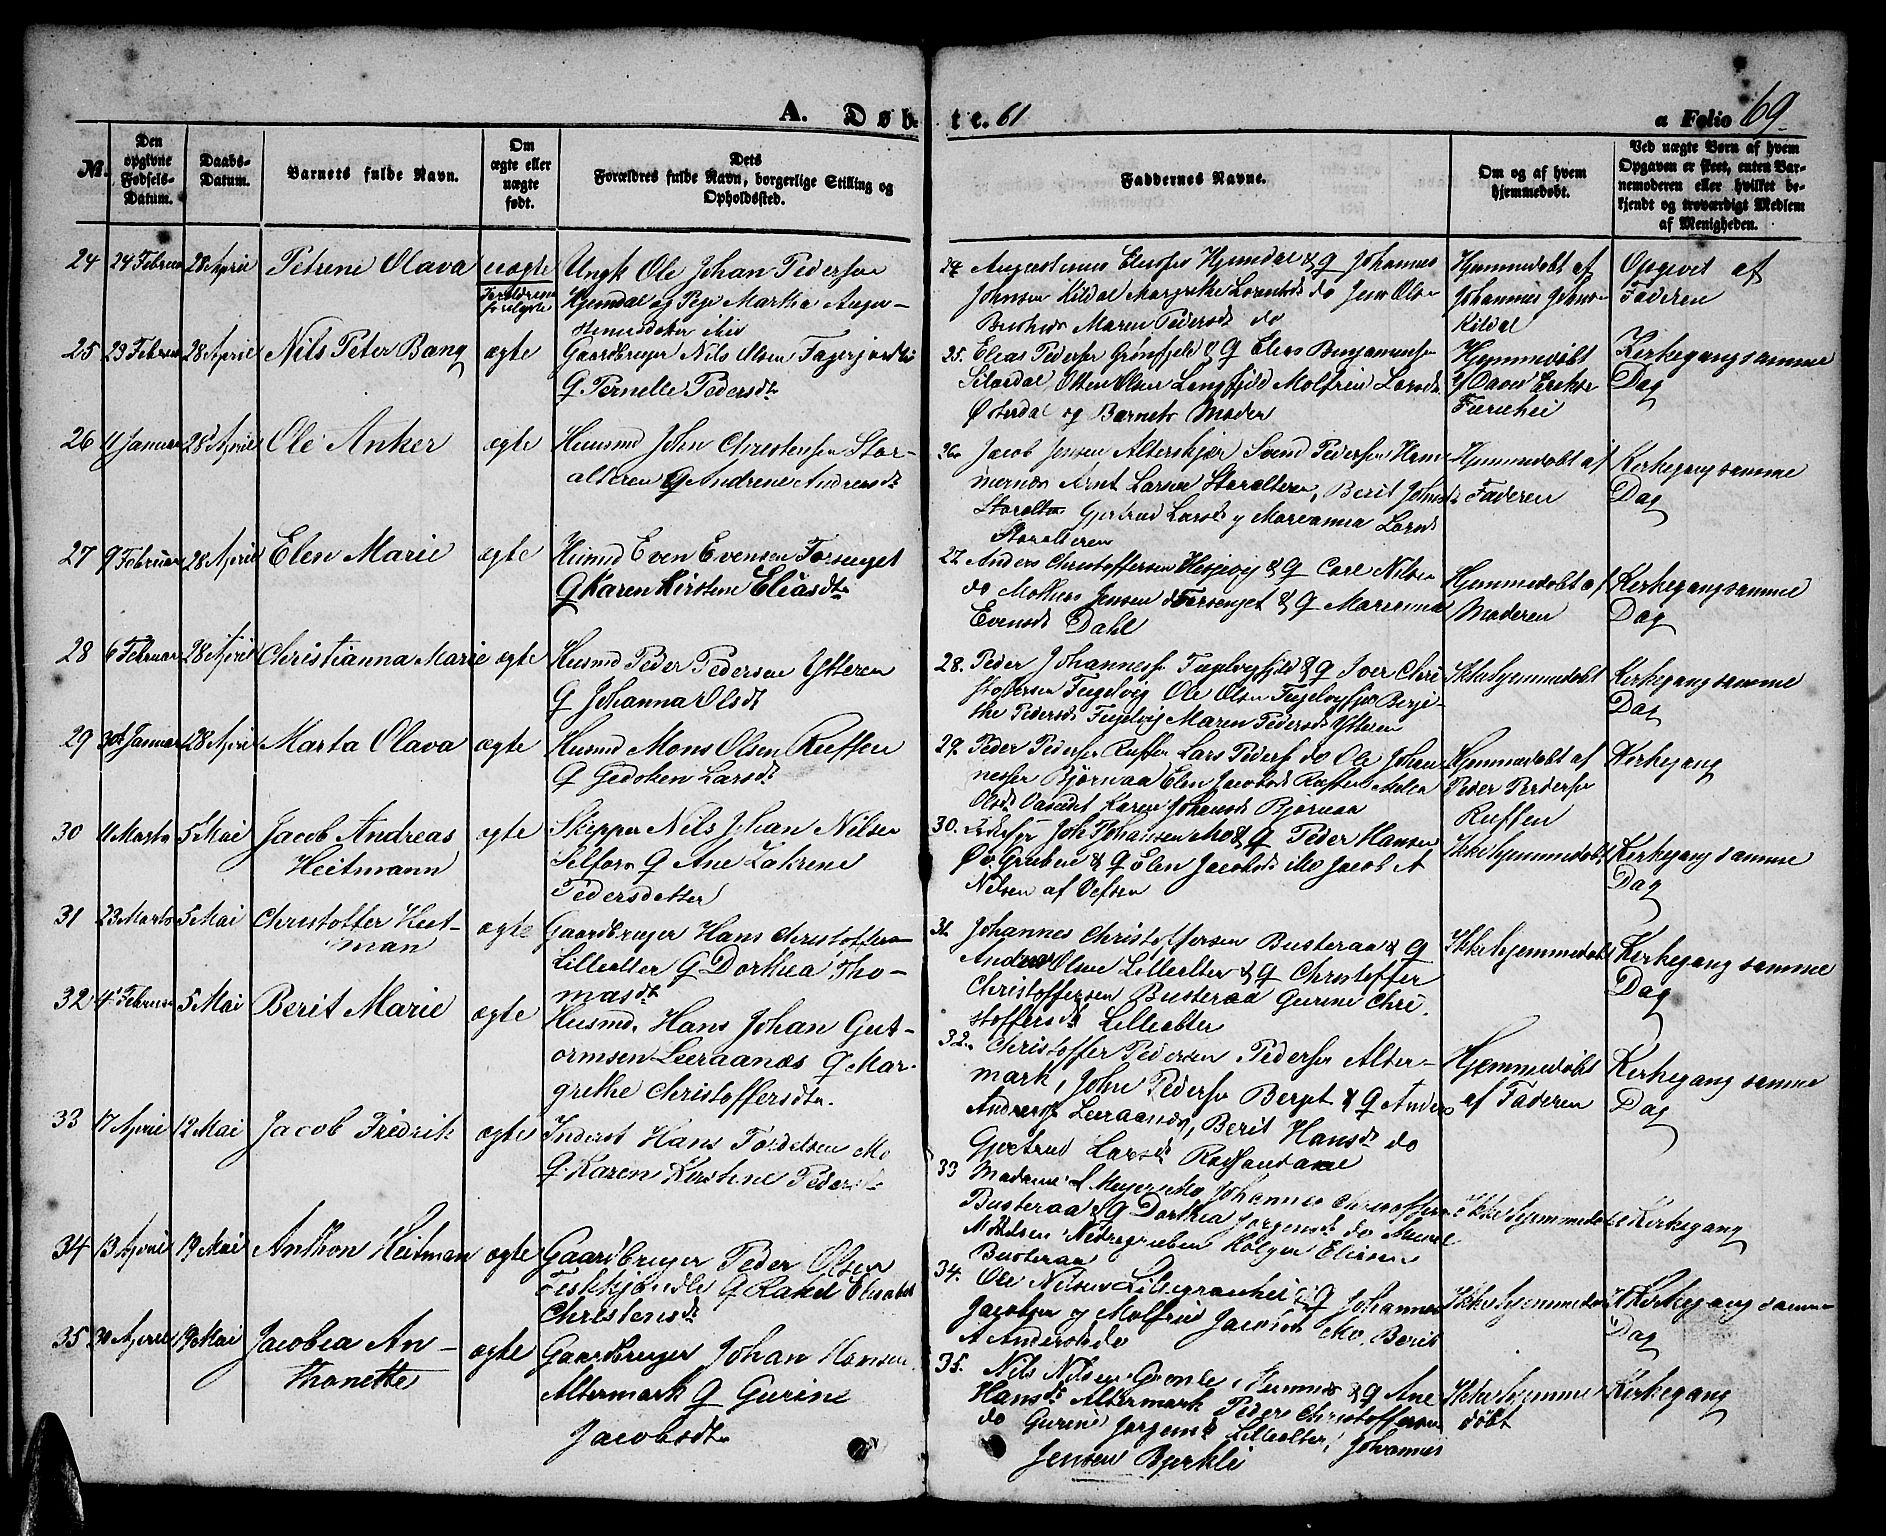 A. Døbte. 61
a Folio 69.
No.
Den opgivne Fødsels-Datum.
Daabs-Datum.
Barnets fulde Navn.
Om ægte eller uægte født.
Dets Forældres fulde Navn, borgerlige Stilling og Opholdssted.
Faddernes Navne.
Om og af hvem hjemmedøbt.
Ved uægte Børn af hvem Opgaven er skeet, enten Barnemoderen eller hvilket bekjendt og troværdigt Medlem af Menigheden.
24 24 Februar 28 April Petrine Olava uægte Ungk Ole Johan Pedersen
Hjemdal og Pige Martha Augu-
Augustinus Hjemdal & Q Johannes
Johnsen Kildal Margrethe do Jens Olsen
Maren Pedersdt do
Hjemmedøbt af
Johannes Johnsen
Kildal
Opgivet af
Faderen
25 23 Februar 28 April Nils Peter Bang ægte Gaardbruger Nils Olsen Fagerjordli
Q Pernelle Pedersdt
25. Elias Pedersen Grønfjeld & Q Elias Benjaminsen
Langfjeld Molfrid Larsdt
Østerdal og Barnets Moder
Hjemmedøbt
Kirkegang samme
Dag
26 11 Januar 28 April Ole Anker ægte Huusmd John Christensen Stor-
alteren Q Andrine Andreasdt
26. Jacob Jensen Alterskjær Svend Pedersen Ham-
mernæs Arnt Larsen Storalteren, Berit Johnsdt
Storaltn Gjertrud Larsdt og Marianna Larsdt
Storalteren
Hjemmedøbt af
Faderen
Kirkegang samme
Dag
27 9 Februar 28 April Elen Marie ægte Husmd Even Evensen Forsenget
Q Karen Kirstine Eliasdtr
27. Anders Christoffersen & Q Carl Nilsen
do Mathias Jensen Forsenget & Q Marianna
Evensdt Dahl
Hjemmedøbt af
Moderen
Kirkegang samme
Dag
28 6 Februar 28 April Christianna Marie ægte Husmd Peder Pedersen Ytteren
Q Johanna Olsdt
28. Peder Johannesen & Q Iver Chri-
stoffersen Fuglvig Ole Olsen Berji-
the Pedersdt Fuglvig Maren Pedersdt Ytteren
Ikke hjemmedøbt
Kirkegang samme
Dag
29 30 Januar 28 April Marta Olava ægte Husmd Mons Olsen Ruffen
Q Gedsken Larsdt
29. Peder Pedersen Ruffen Lars Pedersen do Ole Johan-
nessen Bjørnaa Elen Jacobsdt Ruffen
Olsdt Karen Johansdt Bjørnaa
Hjemmedøbt af
Peder Pedersen
Ruffen
Kirkegang
30 11 Marts 5 Mai Jacob Andreas
Heitmann
ægte Skipper Nils Johan Nilsen
Selfors Q Ane Katrine
Pedersdatter
30. Joh Johansen Mo & Q Peder Hansen
Øv. Gruben & Q Elen Jacobsdt Mo Jacob A
Nilsen af Vefsen
Ikke hjemmedøbt
Kirkegang samme
Dag
31 23 Marts 5 Mai Christoffer Heit-
man
ægte Gaardbruger Hans Christoffersen
Lillealter Q Dorthea Tho-
masdt
31. Johannes Christoffersen Busteraa & Q
Anders Olsen Lillealter & Q Christoffer
Christoffersen Busteraa Gurine Chri-
stoffersdt Lillealter
Ikke hjemmedøbt
Kirkegang samme
Dag
32 4 Februar 5 Mai Berit Marie ægte Husmd. Hans Johan Gut-
ormsen Leeraanæs Q Mar-
grethe Christoffersdtr
32. Christoffer Pedersen Alter-
mark, John Pedersen Berget & Q Anders
Andersen Leeraanæs, Berit Hansdt do
Gjertrud Larsdt
Hjemmedøbt
af Faderen
Kirkegang samme
Dag
33 17 April 12 Mai Jacob Fredrik ægte Inderst Hans Mo
Q. Karen Kirstine Pedersdt
33 Madame Meyer Mo Johannes Christoffersen
Busteraa & Q Dorthea Jørgensdt do
Nedregruben Holger Eliasen
Busteraa
Ikke hjemmedøbt
Kirkegang
34 13 April 19 Mai Anthon Heitman ægte Gaardbruger Peder Olsen
Q Rakel Elisabet
Christensdt
34. Ole Nilsen & Q Johannes
Jacobsen og Molfrid Jacobsdt Mo. Berit
A Andersdt do
Ikke hjemmedøbt
Kirkegang samme
Dag
35 30 April 19 Mai Jacobia An-
thonette
ægte Gaardbruger Johan Hansen
Altermark Q Gurine
Jacobsdtr
35. Nils Nilsen & Q Ane
Hansdt Altermark Peder Christoffersen
do Gurine Jørgensdt Lillealter, Johannes
Jensen Bjerkli
Ikke hjemme-
døbt
Kirkegang